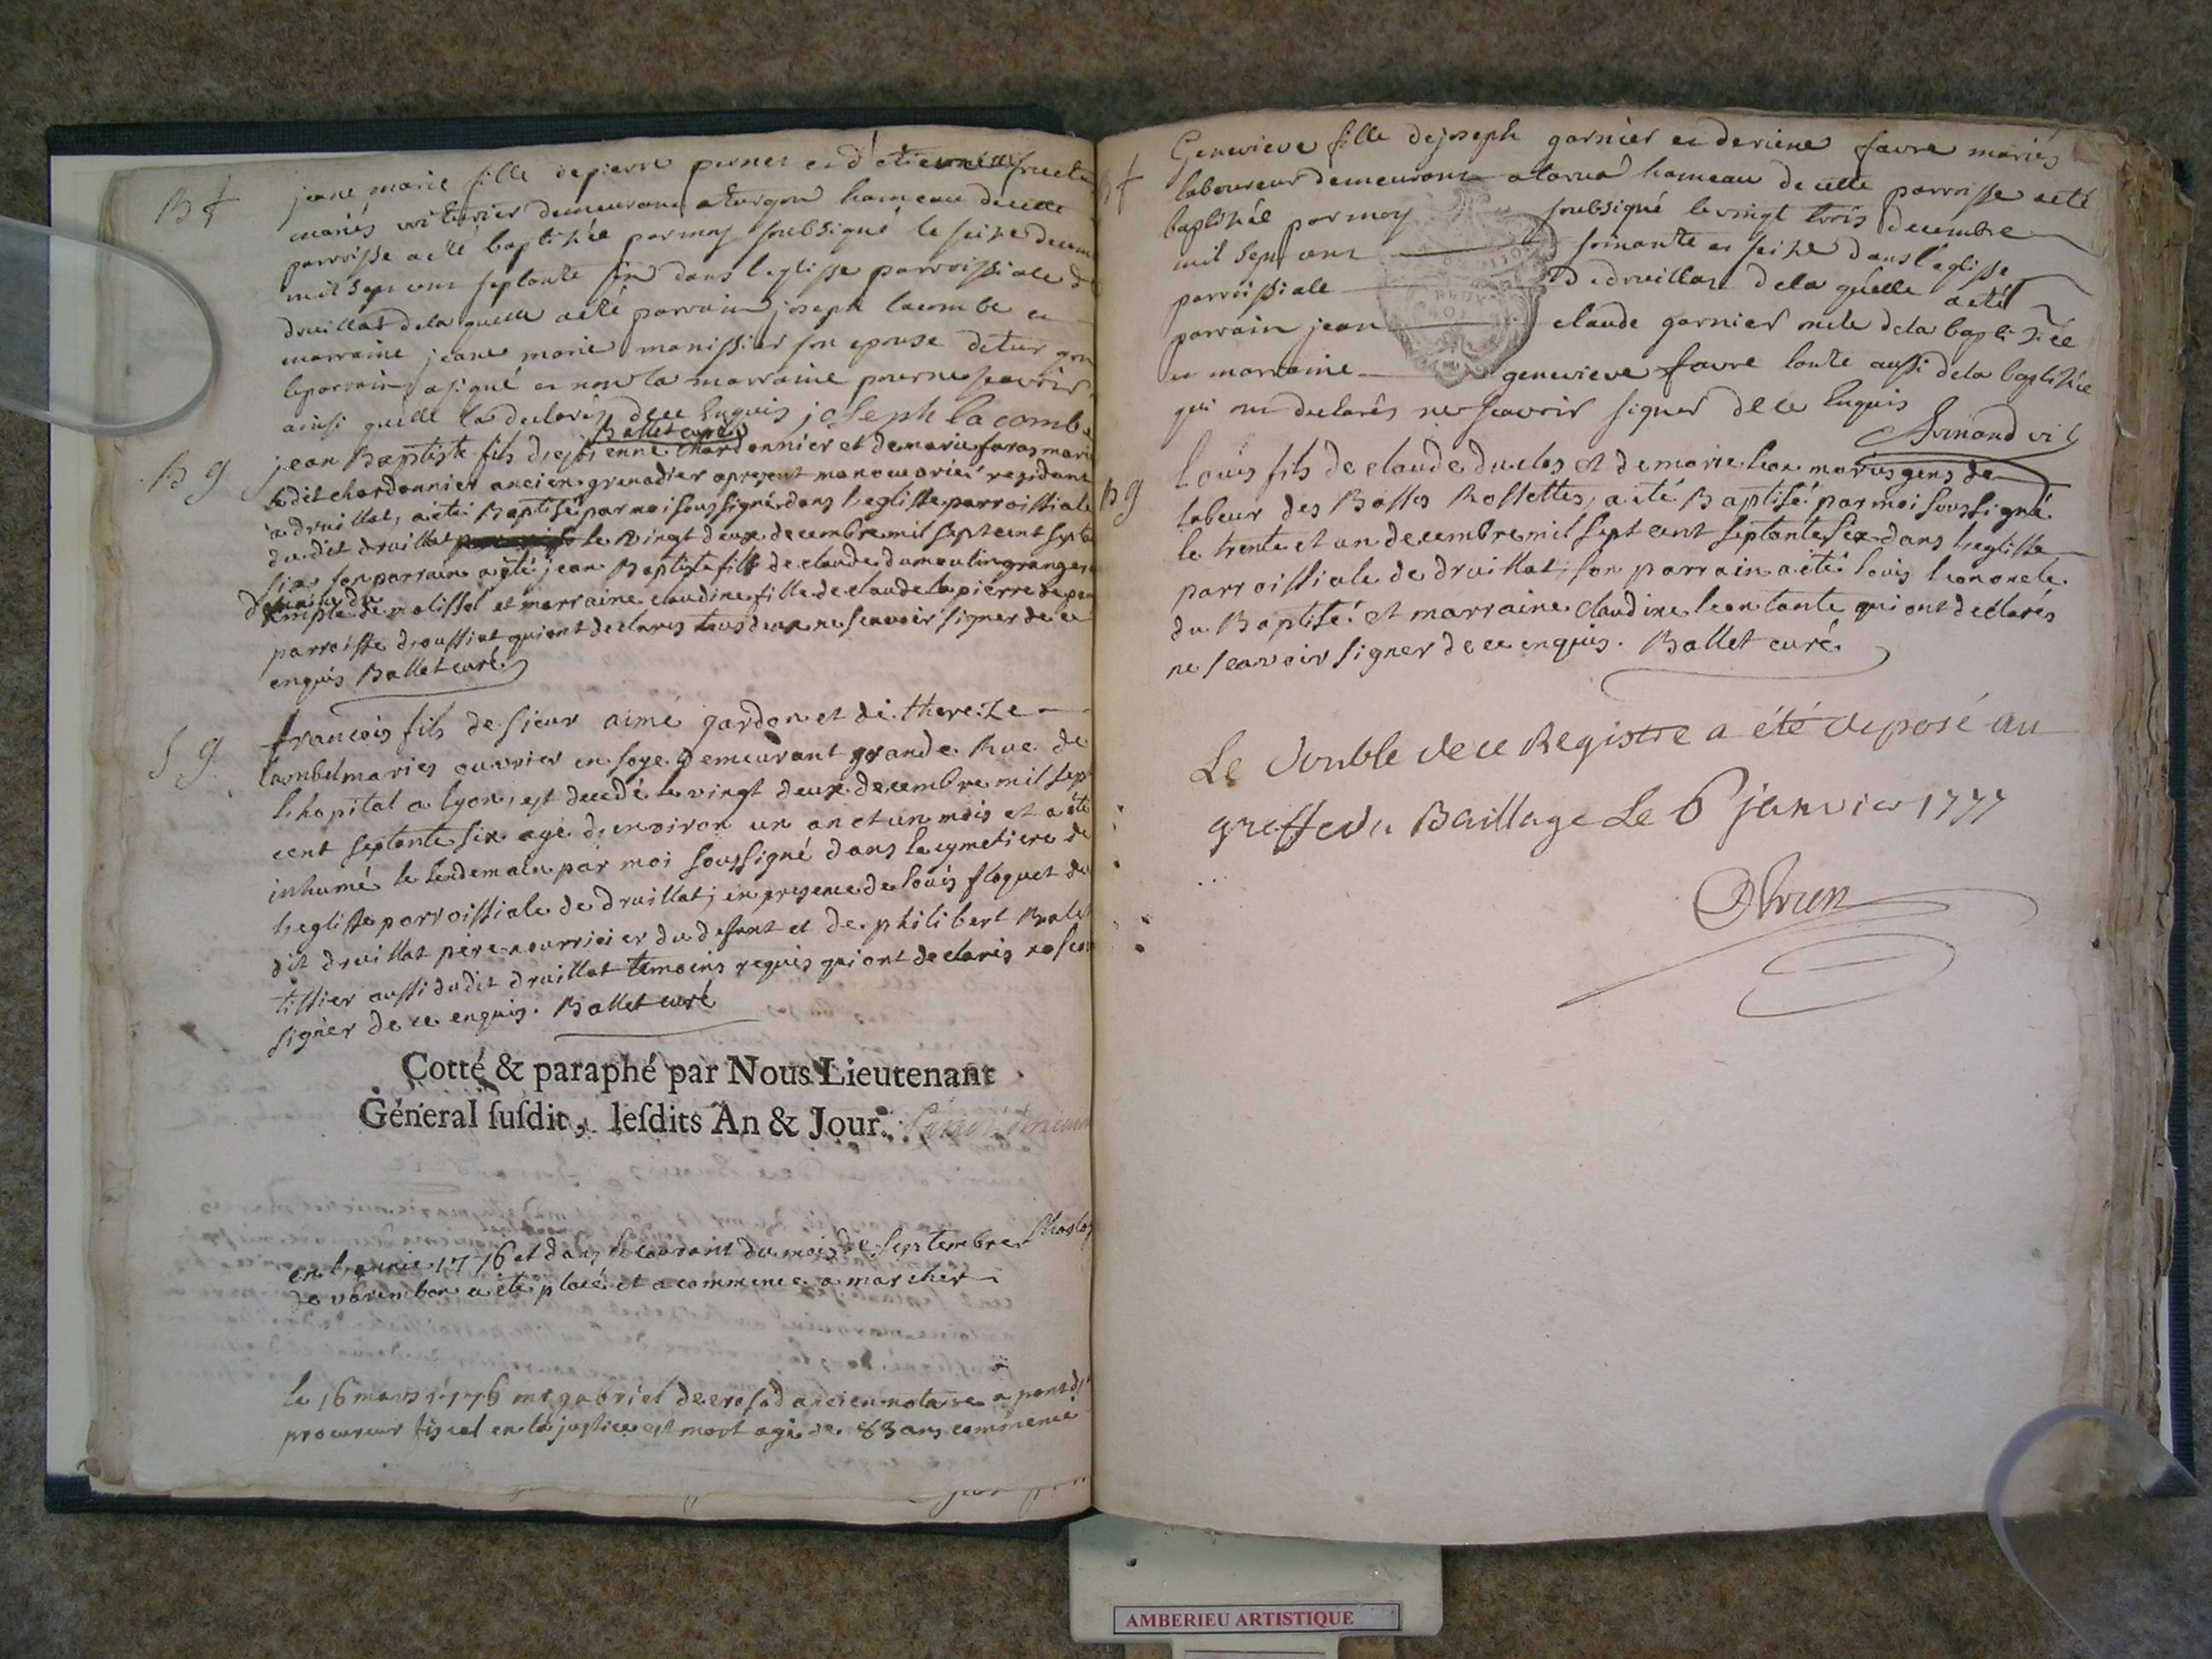 B f
jeane marie fille depierre pernet et d'etiennette
mariés demeurant a turgon hameau de cette
parroisse a eté baptisée par moy soubsigné le seize decem
mil sept cent septante six dans l'eglise parroissiale de
druillat dela quelle a eté parrain joseph lacombe et
marraine jeane marie manissier son epouse de turgon
leparrain a signé et non la marraine pour ne sçavoir
ainsi quelle la declarés de ce enquis joseph la combe
Ballet curé
B g
jean Baptiste fils d'etienne Chardonnier et de marie faras mariés
le dit chardonnier ancien grenadier apresent manouvrier residant
a druillat, a été Baptisé par moi soussigné dans l'eglisse parroissiale
du dit druillat le vingt deux decembre mil sept cent septante
six son parrain a été jean Baptiste fils de claude dumoulin granger
domaine du
temple de molissol et marraine claudine fille de claude lapierre de
parroisse droussiat qui ont declarés tous deux ne scavoir signer de ce
enquis Ballet curé
S g
francois fils de sieur aimé gardon et de thereze
mariés ouvrier en soye demeurant grande Rue de
lhopital a lyon, est decedé le vingt deux decembre mil sept
cent septante six agé denviron un an et un mois et a été
inhumé le lendemain par moi soussigné dans le cymetiere de
leglisse parroissiale de druillat, en presence de louis floquet du
dit druillat pere nourricier du defunt et de philibert
tissier aussi dudit druillat temoins requis qui ont declarés ne scav
signer de ce enquis. Ballet curé
Cotté & paraphé par Nous Lieutenant
Géneral susdit, lesdits An & Jour.
en lannée 1776 et dans le courant du mois de septembre lhorloge
de varembon a été placé et a commencé a marcher
le 16 mars 1776 me gabriel ancien notaire a pont d
procureur fiscal en la justice est mort agé de 83 ans commencé
B f
Genevieve fille de joseph garnier et de favre mariés
laboureur demeurant a hameau de cette parroisse a eté
baptisée par moy soubsigné le vingt trois decembre
mil sept cent soixante et seize dans l'eglisse
parroissiale de druillat dela quelle a eté
parrain jean claude garnier oncle dela baptisée
et marraine genevieve favre tante aussi dela baptisée
qui ont declarés ne sçavoir signer de ce enquis
B g
louis fils de claude duclos et de marie leon mariés gens de
labeur des Basses Rossettes, a été Baptisé par moi soussigné
le trente et un decembre mil sept cent septante six dans leglisse
parroissiale de druillat, son parrain a été louis leon oncle
du Baptisé et marraine claudine leon tante qui ont declarés
ne scavoir signer de ce enquis. Ballet curé
Le double de ce Registre a été deposé au
greffe du Baillage Le 6 janvier 1777
AMBERIEU ARTISTIQUE